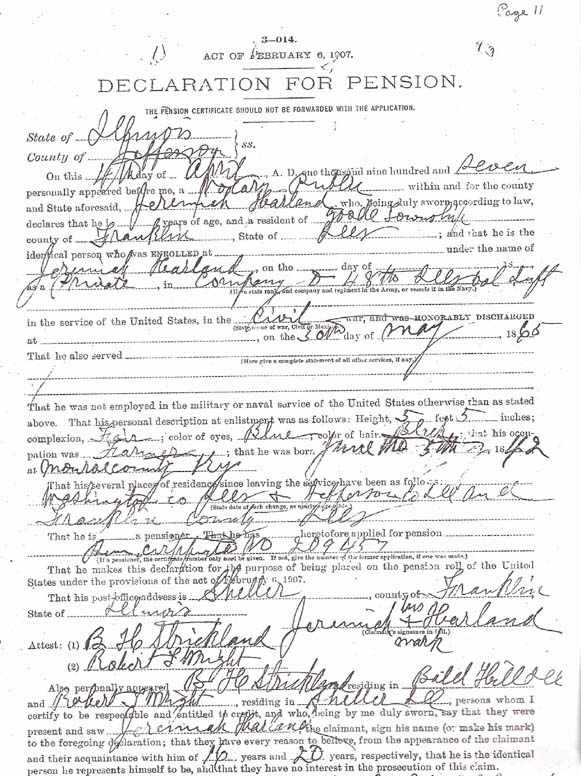 Page 11
3—014.
ACT OF FEBRUARY 6, 1907.
DECLARATION FOR PENSION.
THE PENSION CERTIFICATE SHOULD NOT BE FORWARDED WITH THE APPLICATION.
State of Illinois
County of Jefferson } ss.
On this 4th day of April, A. D. one thousand nine hundred and seven
personally appeared before me, a Notary Public within and for the county
and State aforesaid, Jeremiah Harland who, being duly sworn according to law,
declares that he is years of age, and a resident of Goode Township
county of Franklin, State of Ills; and that he is the
identical person who was ENROLLED at under the name of
Jeremiah Harland, on the day of
as a Private, in Company D 48th Ills
(Here state rank, and company and regiment in the Army, or vessels if in the Navy.)
in the service of the United States, in the Civil war, and was HONORABLY DISCHARGED
(State name of war, Civil or Mexican.)
at , on the 30th day of May, 1865
That he also served
(Here give a complete statement of all other services, if any.)
That he was not employed in the military or naval service of the United States otherwise than as stated
above. That his personal description at enlistment was as follows: Height, 5 feet 5 inches;
complexion, Fair; color of eyes, Blue; color of hair, ; that his occu-
pation was Farmer; that he was born, 5th 1842
at Monroe county Ky
That his several places of residence since leaving the service have been as follows:
Washington co Ills & Jefferson co Ill and
(State date of each change, as nearly as possible.)
Franklin County Ills
That he is a pensioner. That he has heretofore applied for pension
certificate NO 209457
(If a pensioner, the certificate number only must be given. If not, give the number of the former application, if one was made.)
That he makes this declaration for the purpose of being placed on the pension roll of the United
States under the provisions of the act of February 6, 1907.
That his post-office address is Sheller, county of Franklin
State of Illinois
Jeremiah his + Harland
mark
(Claimant's signature in full.)
Attest: (1) B H Strickland
(2) Robert Wright
Also personally appeared B H Strickland residing in Bald Hill Ill
and Robert Wright, residing in Sheller Ill, persons whom I
certify to be respectable and entitled to credit, and who, being by me duly sworn, say that they were
present and saw Jeremiah Harland the claimant, sign his name (or make his mark)
to the foregoing declaration; that they have every reason to believe, from the appearance of the claimant
and their acquaintance with him of 16 years and 20 years, respectively, that he is the identical
person he represents himself to be, and that they have no interest in the prosecution of this claim.